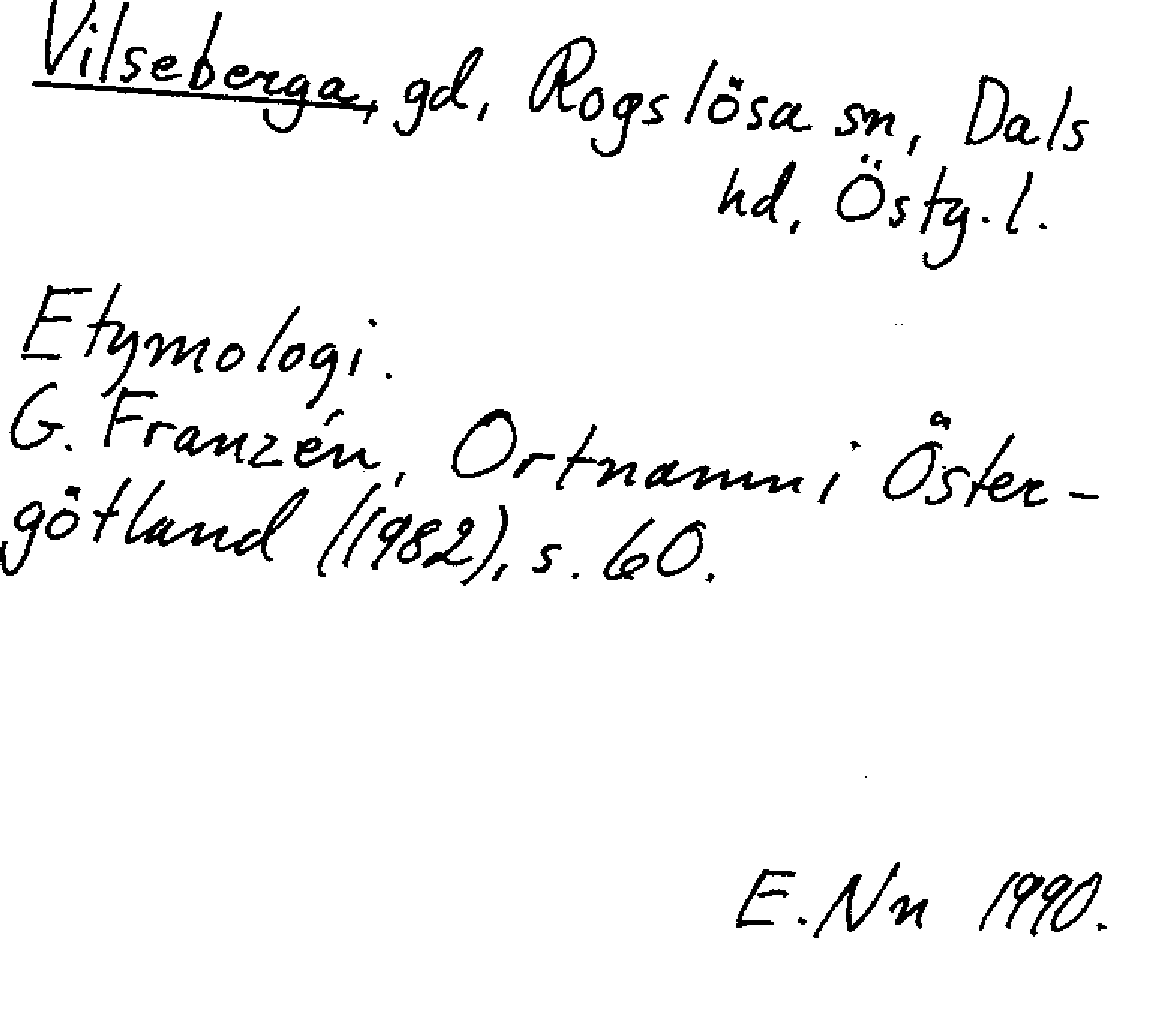 Vilseberga, gd, Rogslösa sn, Dals
hd, Östg.l.
Etymologi.
G. Franzén, Ortnamn i Öster-
götland (1982), s. 60.
E. Nn 1990.